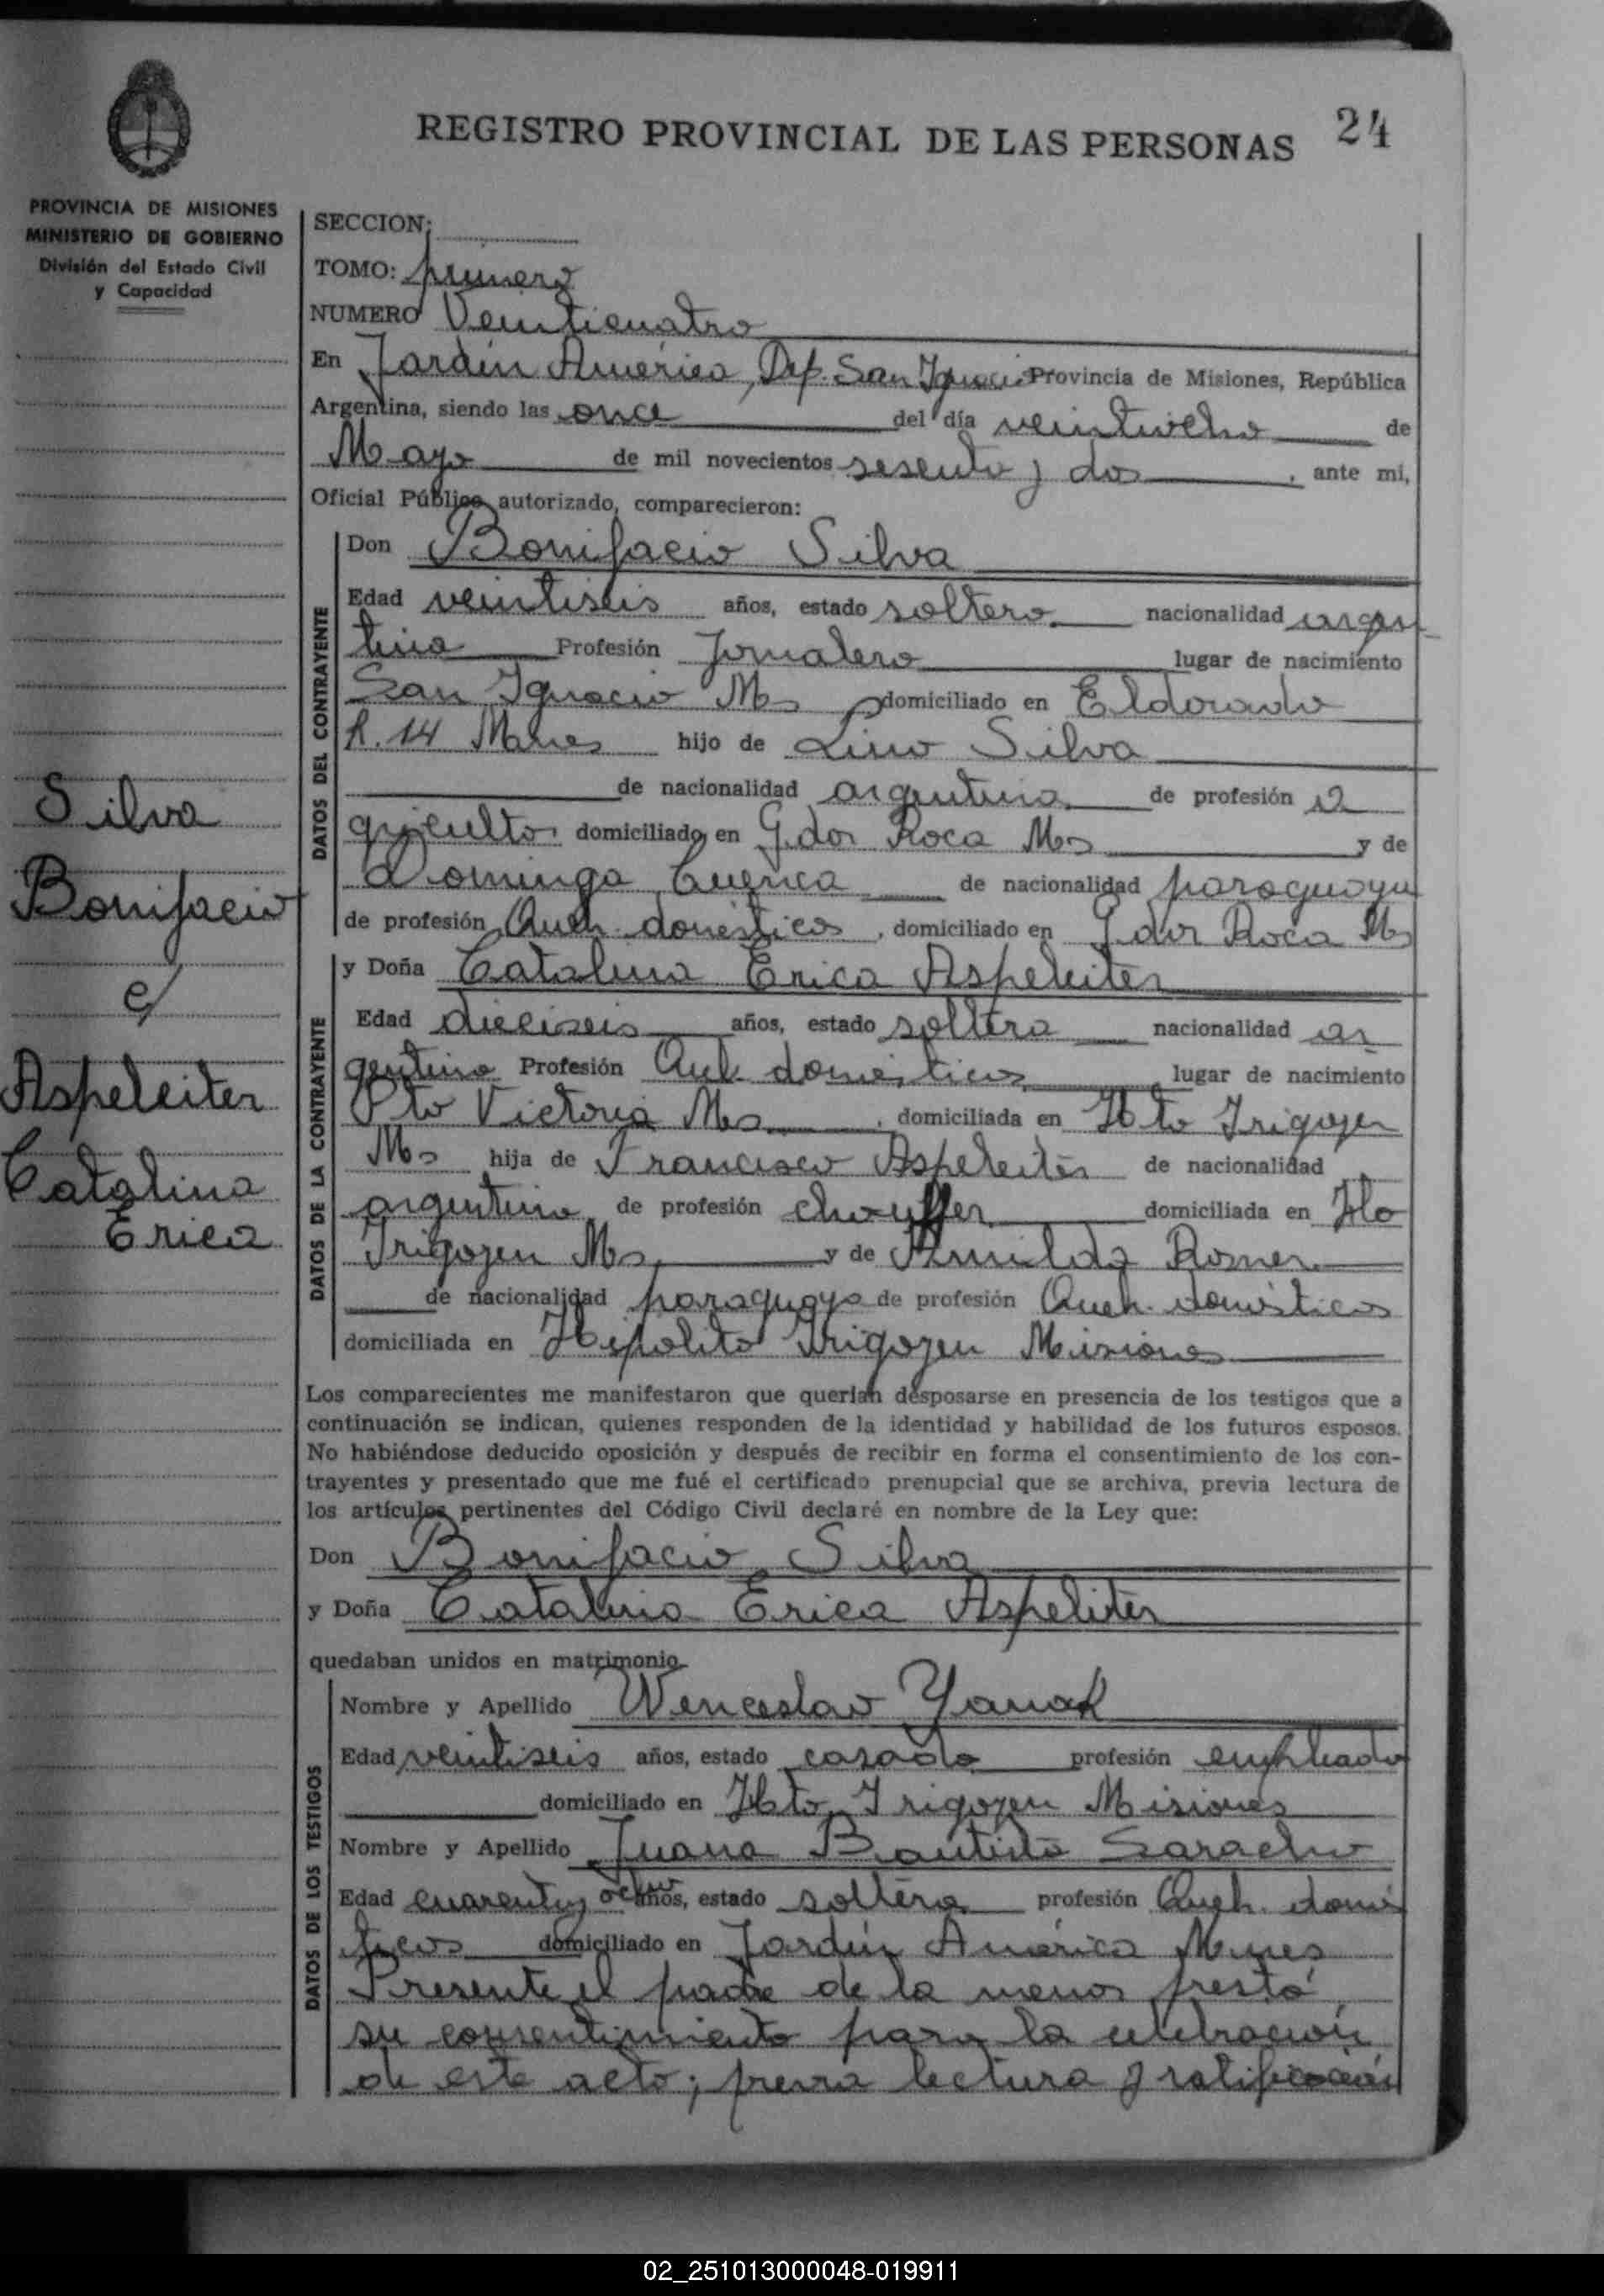 REGISTRO PROVINCIAL DE LAS PERSONAS 24
PROVINCIA DE MISIONES
MINISTERIO DE GOBIERNO
División del Estado Civil
y Capacidad
Silva
Bonifacio
c/
Aspeleiter
Catalina
Erica
SECCION:
TOMO: primero
NUMERO Veinticuatro
En Jardin América, Dep. San Ignacio Provincia de Misiones, República
Argentina, siendo las once del día veintiocho de
Mayo de mil novecientos sesenta y dos, ante mi,
Oficial Público autorizado, comparecieron:
DATOS DEL CONTRAYENTE
Don Bonifacio Silva
Edad veintiseis años, estado soltero nacionalidad argen
tina Profesión Jornalero lugar de nacimiento
San Ignacio Ms domiciliado en Eldorado
R. 14 hijo de Lino Silva
de nacionalidad argentina de profesión a
gricultor domiciliado en Gdor Roca Ms y de
Dominga Cuenca de nacionalidad paraguaya
de profesión Queh. domésticos, domiciliado en Gdor Roca Ms
DATOS DE LA CONTRAYENTE
y Doña Catalina Erica Aspeleiter
Edad dieciseis años, estado soltera nacionalidad ar
gentina Profesión Queh. domésticos lugar de nacimiento
Pto Victoria Ms, domiciliada en Hto Irigoyen
Ms hija de Francisco Aspeleiter de nacionalidad
argentina de profesión chouffer domiciliada en Hto
Irigoyen Ms y de Armilda Romer
de nacionalidad paraguaya de profesión Queh. domésticos
domiciliada en Hipolito Irigoyen Misiones
Los comparecientes me manifestaron que querían desposarse en presencia de los testigos que a
continuación se indican, quienes responden de la identidad y habilidad de los futuros esposos.
No habiéndose deducido oposición y después de recibir en forma el consentimiento de los con-
trayentes y presentado que me fué el certificado prenupcial que se archiva, previa lectura de
los artículos pertinentes del Código Civil declaré en nombre de la Ley que:
Don Bonifacio Silva
y Doña Catalina Erica Aspeliter
quedaban unidos en matrimonio.
DATOS DE LOS TESTIGOS
Nombre y Apellido Wenceslao Yanak
Edad veintiseis años, estado casado profesión empleado
domiciliado en Hto Irigoyen Misiones
Nombre y Apellido Juana Bautista Saracho
Edad cuarenta y ocho años, estado soltera profesión Queh. domés
ticos domiciliado en Jardín América
Presente el padre de la menor prestó
su consentimiento para la celebración
de este acto; previa lectura y ratificación
02_251013000048-019911